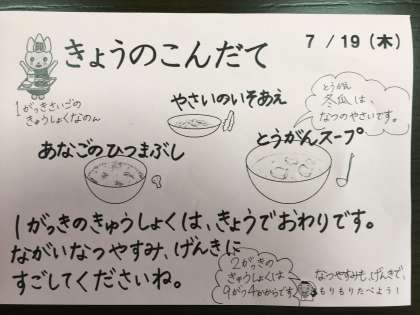 きょうのこんだて
7/19(木)
1がっきさいごの
きゅうしょくなのん
やさいのいそあえ
とうがん
冬瓜は、
なつのやさいです。
あなごのひつまぶし
とうがんスープ
1がっきのきゅうしょくは、きょうでおわりです。
ながいなつやすみ、げんきに
すごしてくださいね。
2がっきの
きゅうしょくは
9がつ4かからです
なつやすみも、げんきで、
もりもりたべよう!